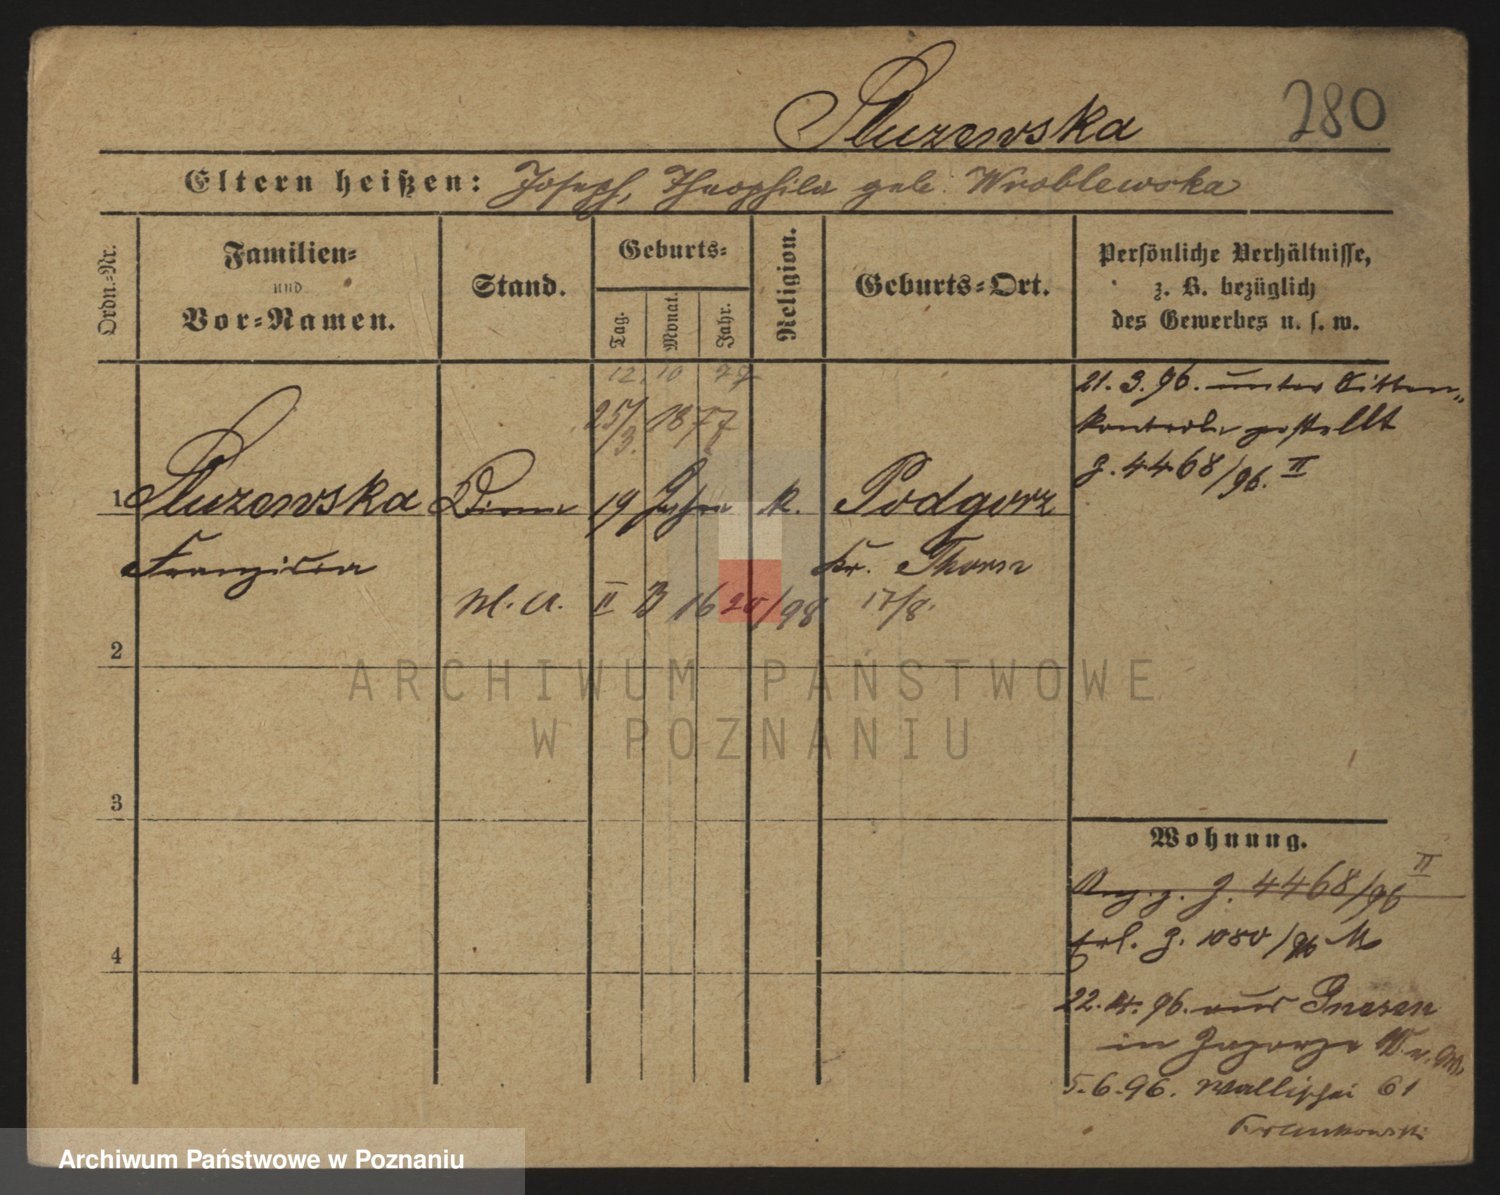 Pluzewska 280
Eltern heißen: Joseph, Theophila geb. Wroblewska
Ordn.-Nr.
Familien-
und
Vor-Namen.
Stand.
Geburts-
Tag.
Monat.
Jahr.
Religion.
Geburts-Ort.
Persönliche Verhältnisse,
z. B. bezüglich
des Gewerbes u. s. w.
12. 10 77
21. 3. 96. unter Sitten-
kontrole gestellt
J. 4468/96. II
1 Pluzewska Dirne 19 Jahre k. Podgorz
Franziska Kr. Thorn
II B 16 20/98 17/8.
2
3
4
Wohnung.
J. 4468/96 II
Erl. J. 1080/96 M
22. 4. 96. aus Gnesen
in Zagorze
5.6.96. Wallischei 61
ARCHIWUM PAŃSTWOWE
W POZNANIU
Archiwum Państwowe w Poznaniu